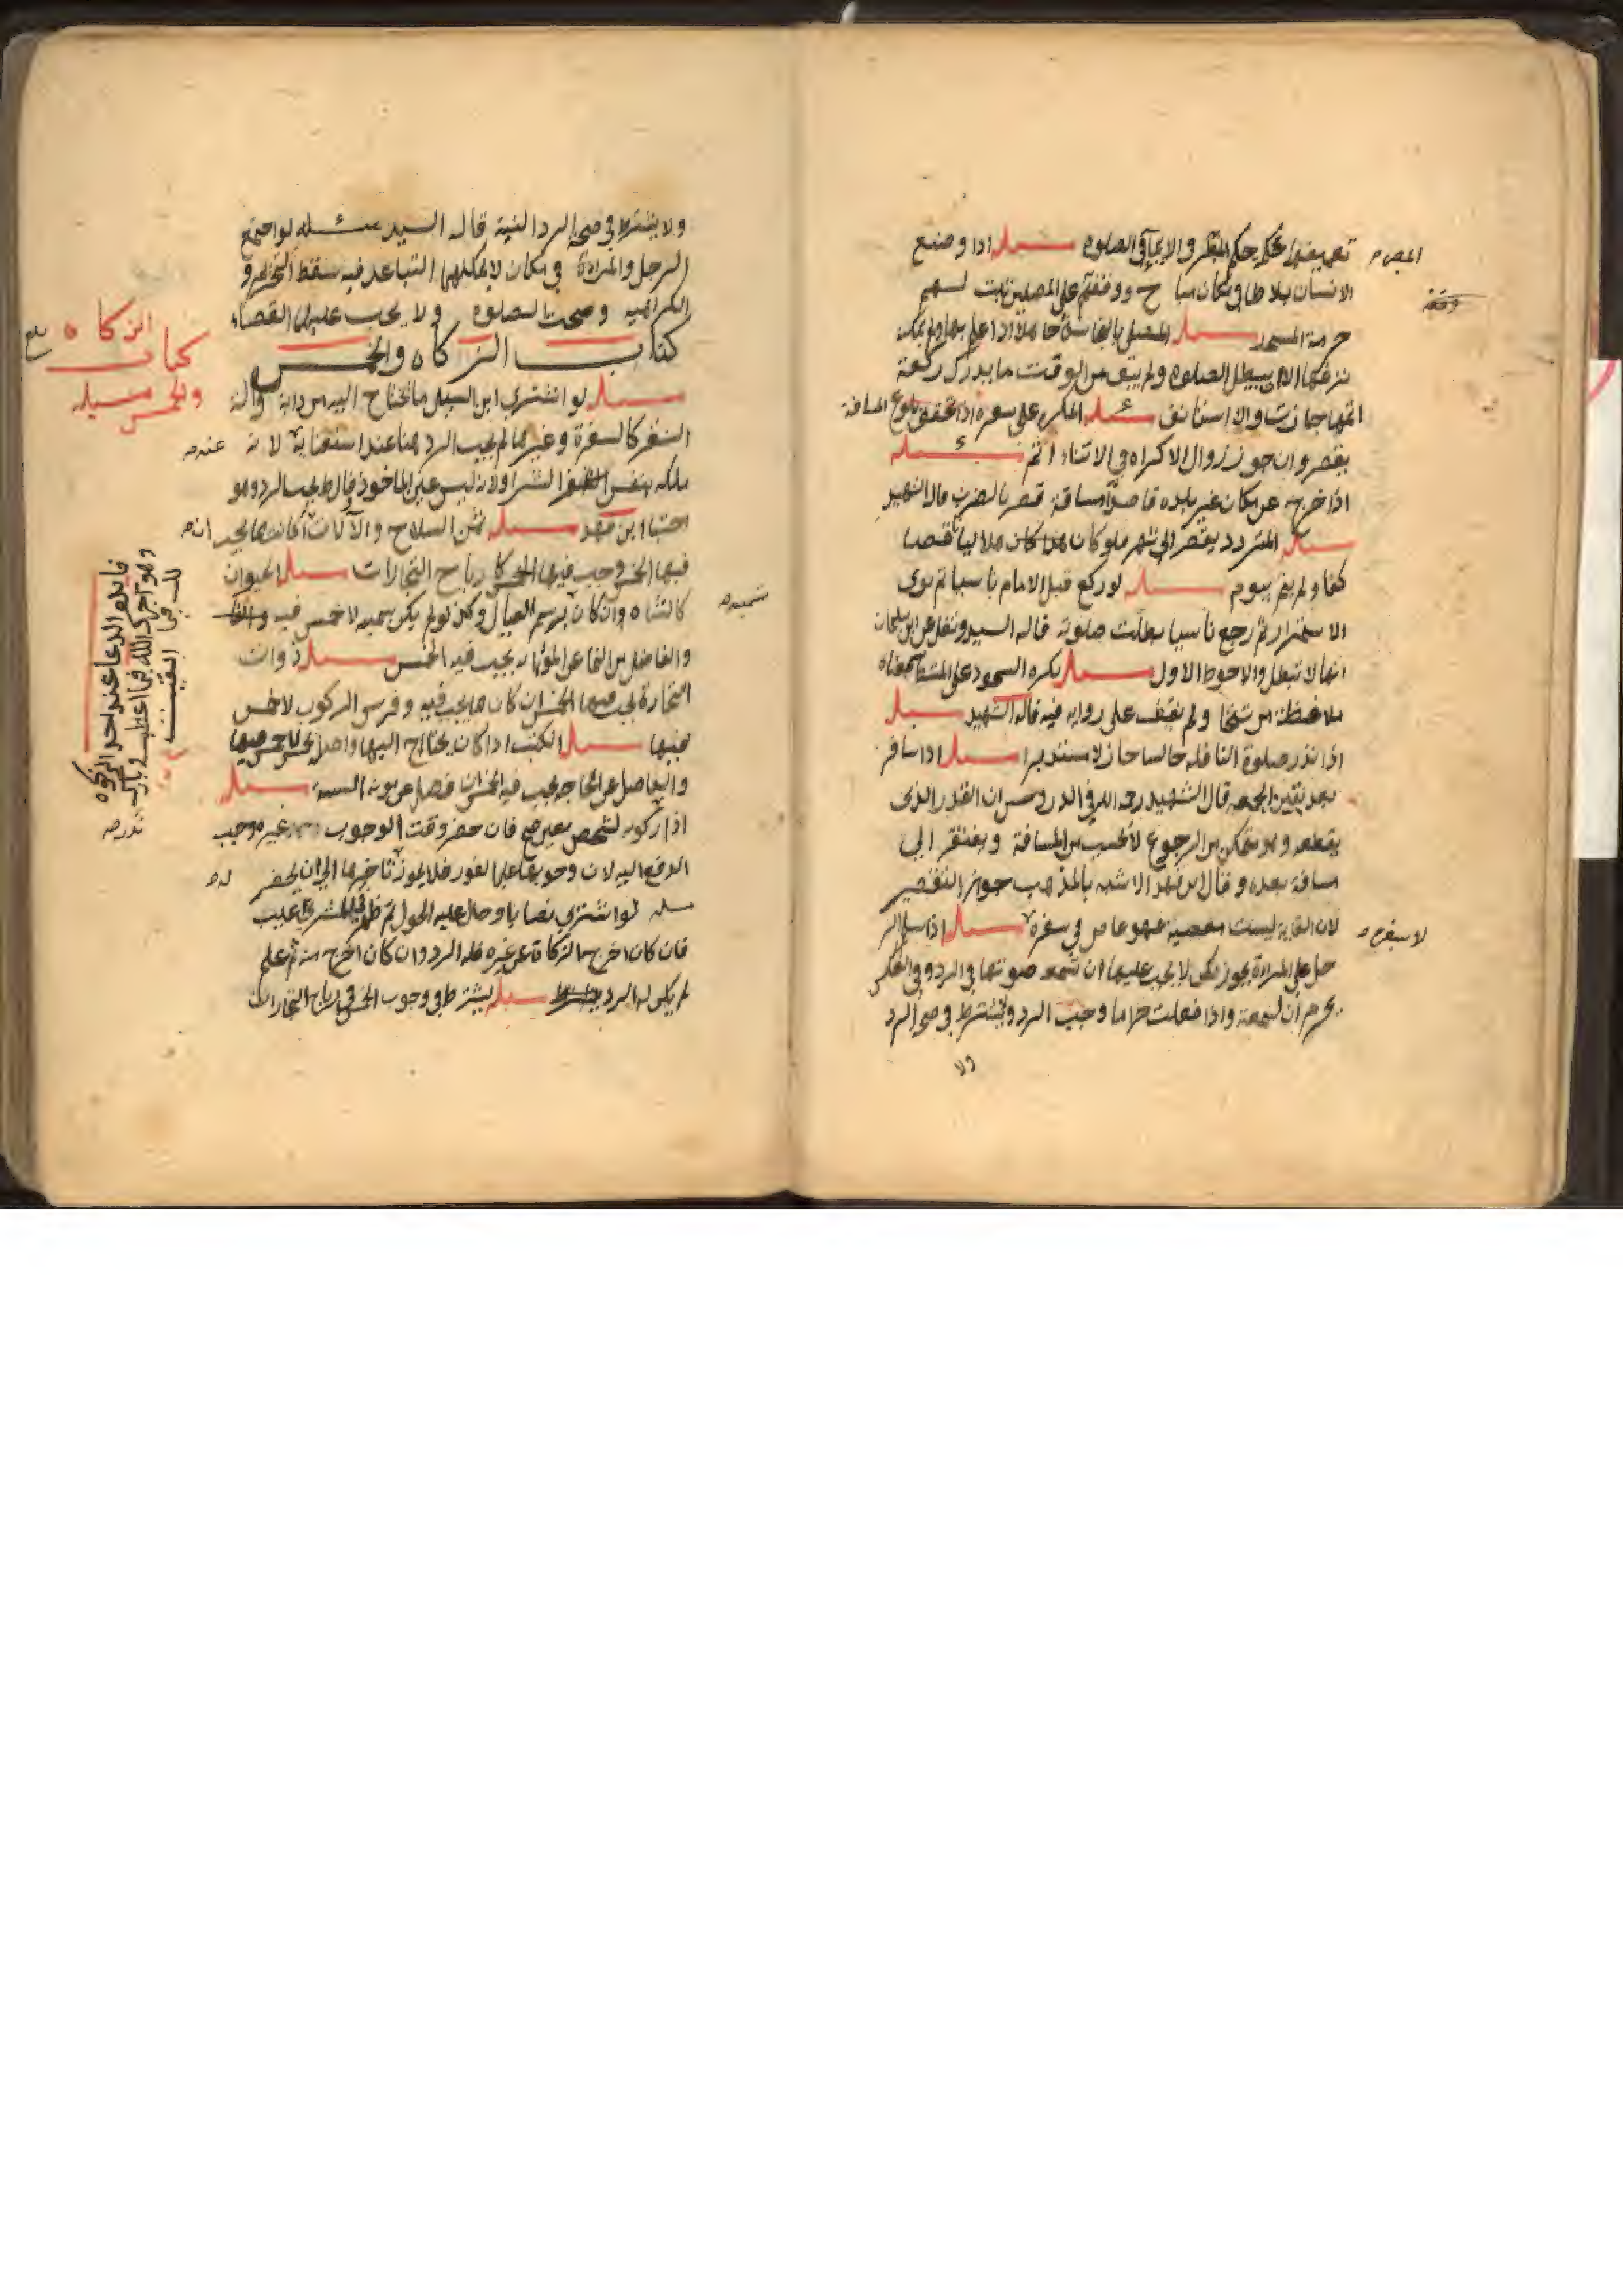 تعريضها حكم المقر والايماء في الصلوة مسئله اذا وضع
الانسان بلاطا في مكان مباح ووقفه على المصلين ثبت لهم
حرمة المسجد مسئله المصلي بالنجاسة جاهلا اذا علم بها ولم يمكنه
نزعها الا بمبطل الصلوة ولم يبق من الوقت ما يدرك ركعة
اتمها جازت والا استانف مسئله المكره على سفره اذا تحقق بلوغ المسافة
يقصر وان جوز زوال الاكراه في الاثناء اتم مسئله
اذا خرج عن مكان غير بلده قاصدا مسافة قصر بالضرب قال الشهيد
مسئله المتردد يقصر الى شهر فلو كان هلاليا ناقصا
كفا ولم يتم بيوم مسئله لو ركع قبل الامام ناسيا ثم نوى
الاستمرار ثم رجع ناسيا بطلت صلوته قاله السيد ونقل عن ابن سلمان
انها لا تبطل والاحوط الاول مسئله يكره السجود على المشط سمعناه
ملاحظة من شيخنا ولم نقف على رواية فيه قاله الشهيد مسئله
اذا نذر صلوة النافلة جالسا جاز لا مستدبرا مسئله اذا سافر
بعد يقين الجمعة قال الشهيد رحمه الله في الدروس ان القدر الذي
يقطعه وهو متمكن من الرجوع لا يحسب من المسافة ويفتقر الى
مسافة بعده وقال ابن فهد الاشبه بالمذهب جواز التقصير
لان الغاية ليست معصية فهو عاص في سفره مسئله اذا سلم الر
جل على المراة يجوز لكن لا يجب عليها ان تسمعه صوتها في الرد وفي العكس
يحرم ان تسمعه واذا فعلت حراما وجب الرد ويشترط في صحة الرد
ولا
ولا يشترط في صحة الرد النية قاله السيد مسئله لو اجتمع
الرجل والمراة في مكان لا يمكنهما التباعد فيه سقط التحريم و
الكراهية وصحت الصلوة ولا يجب عليهما القضاء
كتاب الزكاة والخمس
مسئله لو اشترى ابن السبيل ما يحتاج اليه من دابة وآلة
السفر كالسفرة وغيرها لم يجب الرد هنا عند استغنائه لانه
ملكه بنفس الشراء ولانه ليس عين الماخوذ قال ط يجب الرد وهو
اختيار ابن فهد مسئله ثمن السلاح والآلات اذا كانت مما يجب
فيها الخمس وجب فيها كارباح التجارات مسئله الحيوان
كالشاة وان كان برسم العيال ولكن لو لم يكن سمينه لا خمس فيه
والفاضل من النماء عن المؤنة يجب فيه الخمس مسئله ذوات
التجارة يجب فيها الخمس ان كان مما يجب فيه وفرس الركوب لا خمس
فيها مسئله الكتب اذا كان يحتاج اليها لا خمس فيها
والفاضل عن الحاجة يجب فيه الخمس ان فضل عن مونة السنة مسئله
اذا زكوته لشخص بعينه صح فان حضر وقت الوجوب غيره وجب
الدفع اليه لان وجوبها على الفور فلا يجوز تاخيرها الى ان يحضر
مسئله لو اشترى نصابا وحال عليه الحول ثم ظهر للمشتري عيب
فان كان اخرج الزكاة عن غيره فله الرد وان كان اخرج منه ثم علم
لم يكن له الرد مسئله يشترط في وجوب الخمس في ارباح التجارات
كتاب الزكاة
والخمس مسئله
فايدة الدعا عند اخذ الزكوة
وهو آجرك الله فيما اعطيت وبارك
لك فيما ابقيت